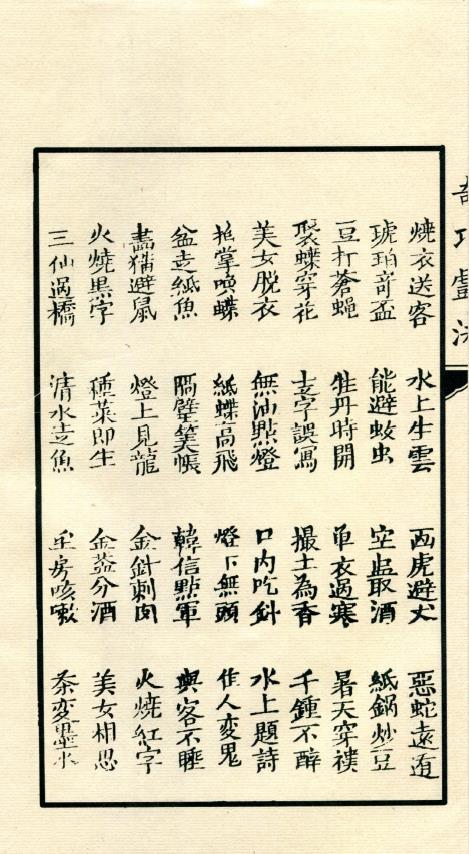 燒衣送客 水上生雲 虎避犬 惡蛇遠遁
琥珀奇盃 能避蚊虫 空盅取酒 紙鍋炒豆
豆打蒼蝇 牡丹時開 单衣過寒 暑天穿襖
聚蝶穿花 字誤寫 撮土為香 千鍾不醉
美女脫衣 無油點燈 口内吃針 水上題詩
拍掌喚蝶 紙蝶高飛 燈下無頭 作人变鬼
盆走紙魚 隔璧笑帳 韓信點軍 與客不睡
畵猫避鼠 燈上見龍 金針刺肉 火燒紅字
火燒黑字 種菜即生 金盞分酒 美女相思
三仙過橋 清水走魚 房咳嗽 茶变墨水